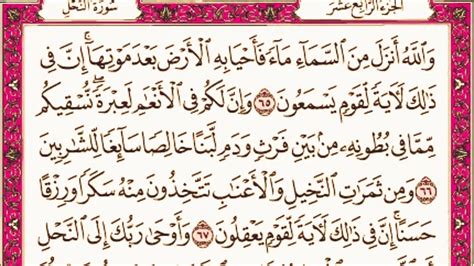 سُورَةُ النَّحْلِ الجُزْءُ الرَّابِعُ عَشَرَ
وَٱللَّهُ أَنزَلَ مِنَ ٱلسَّمَآءِ مَآءً فَأَحْيَا بِهِ ٱلْأَرْضَ بَعْدَ مَوْتِهَآ إِنَّ فِى
ذَٰلِكَ لَءَايَةً لِّقَوْمٍ يَسْمَعُونَ ٦٥ وَإِنَّ لَكُمْ فِى ٱلْأَنْعَٰمِ لَعِبْرَةً نُّسْقِيكُم
مِّمَّا فِى بُطُونِهِۦ مِنۢ بَيْنِ فَرْثٍ وَدَمٍ لَّبَنًا خَالِصًا سَآئِغًا لِّلشَّٰرِبِينَ
٦٦ وَمِن ثَمَرَٰتِ ٱلنَّخِيلِ وَٱلْأَعْنَٰبِ تَتَّخِذُونَ مِنْهُ سَكَرًا وَرِزْقًا
حَسَنًا إِنَّ فِى ذَٰلِكَ لَءَايَةً لِّقَوْمٍ يَعْقِلُونَ ٦٧ وَأَوْحَىٰ رَبُّكَ إِلَى ٱلنَّحْلِ